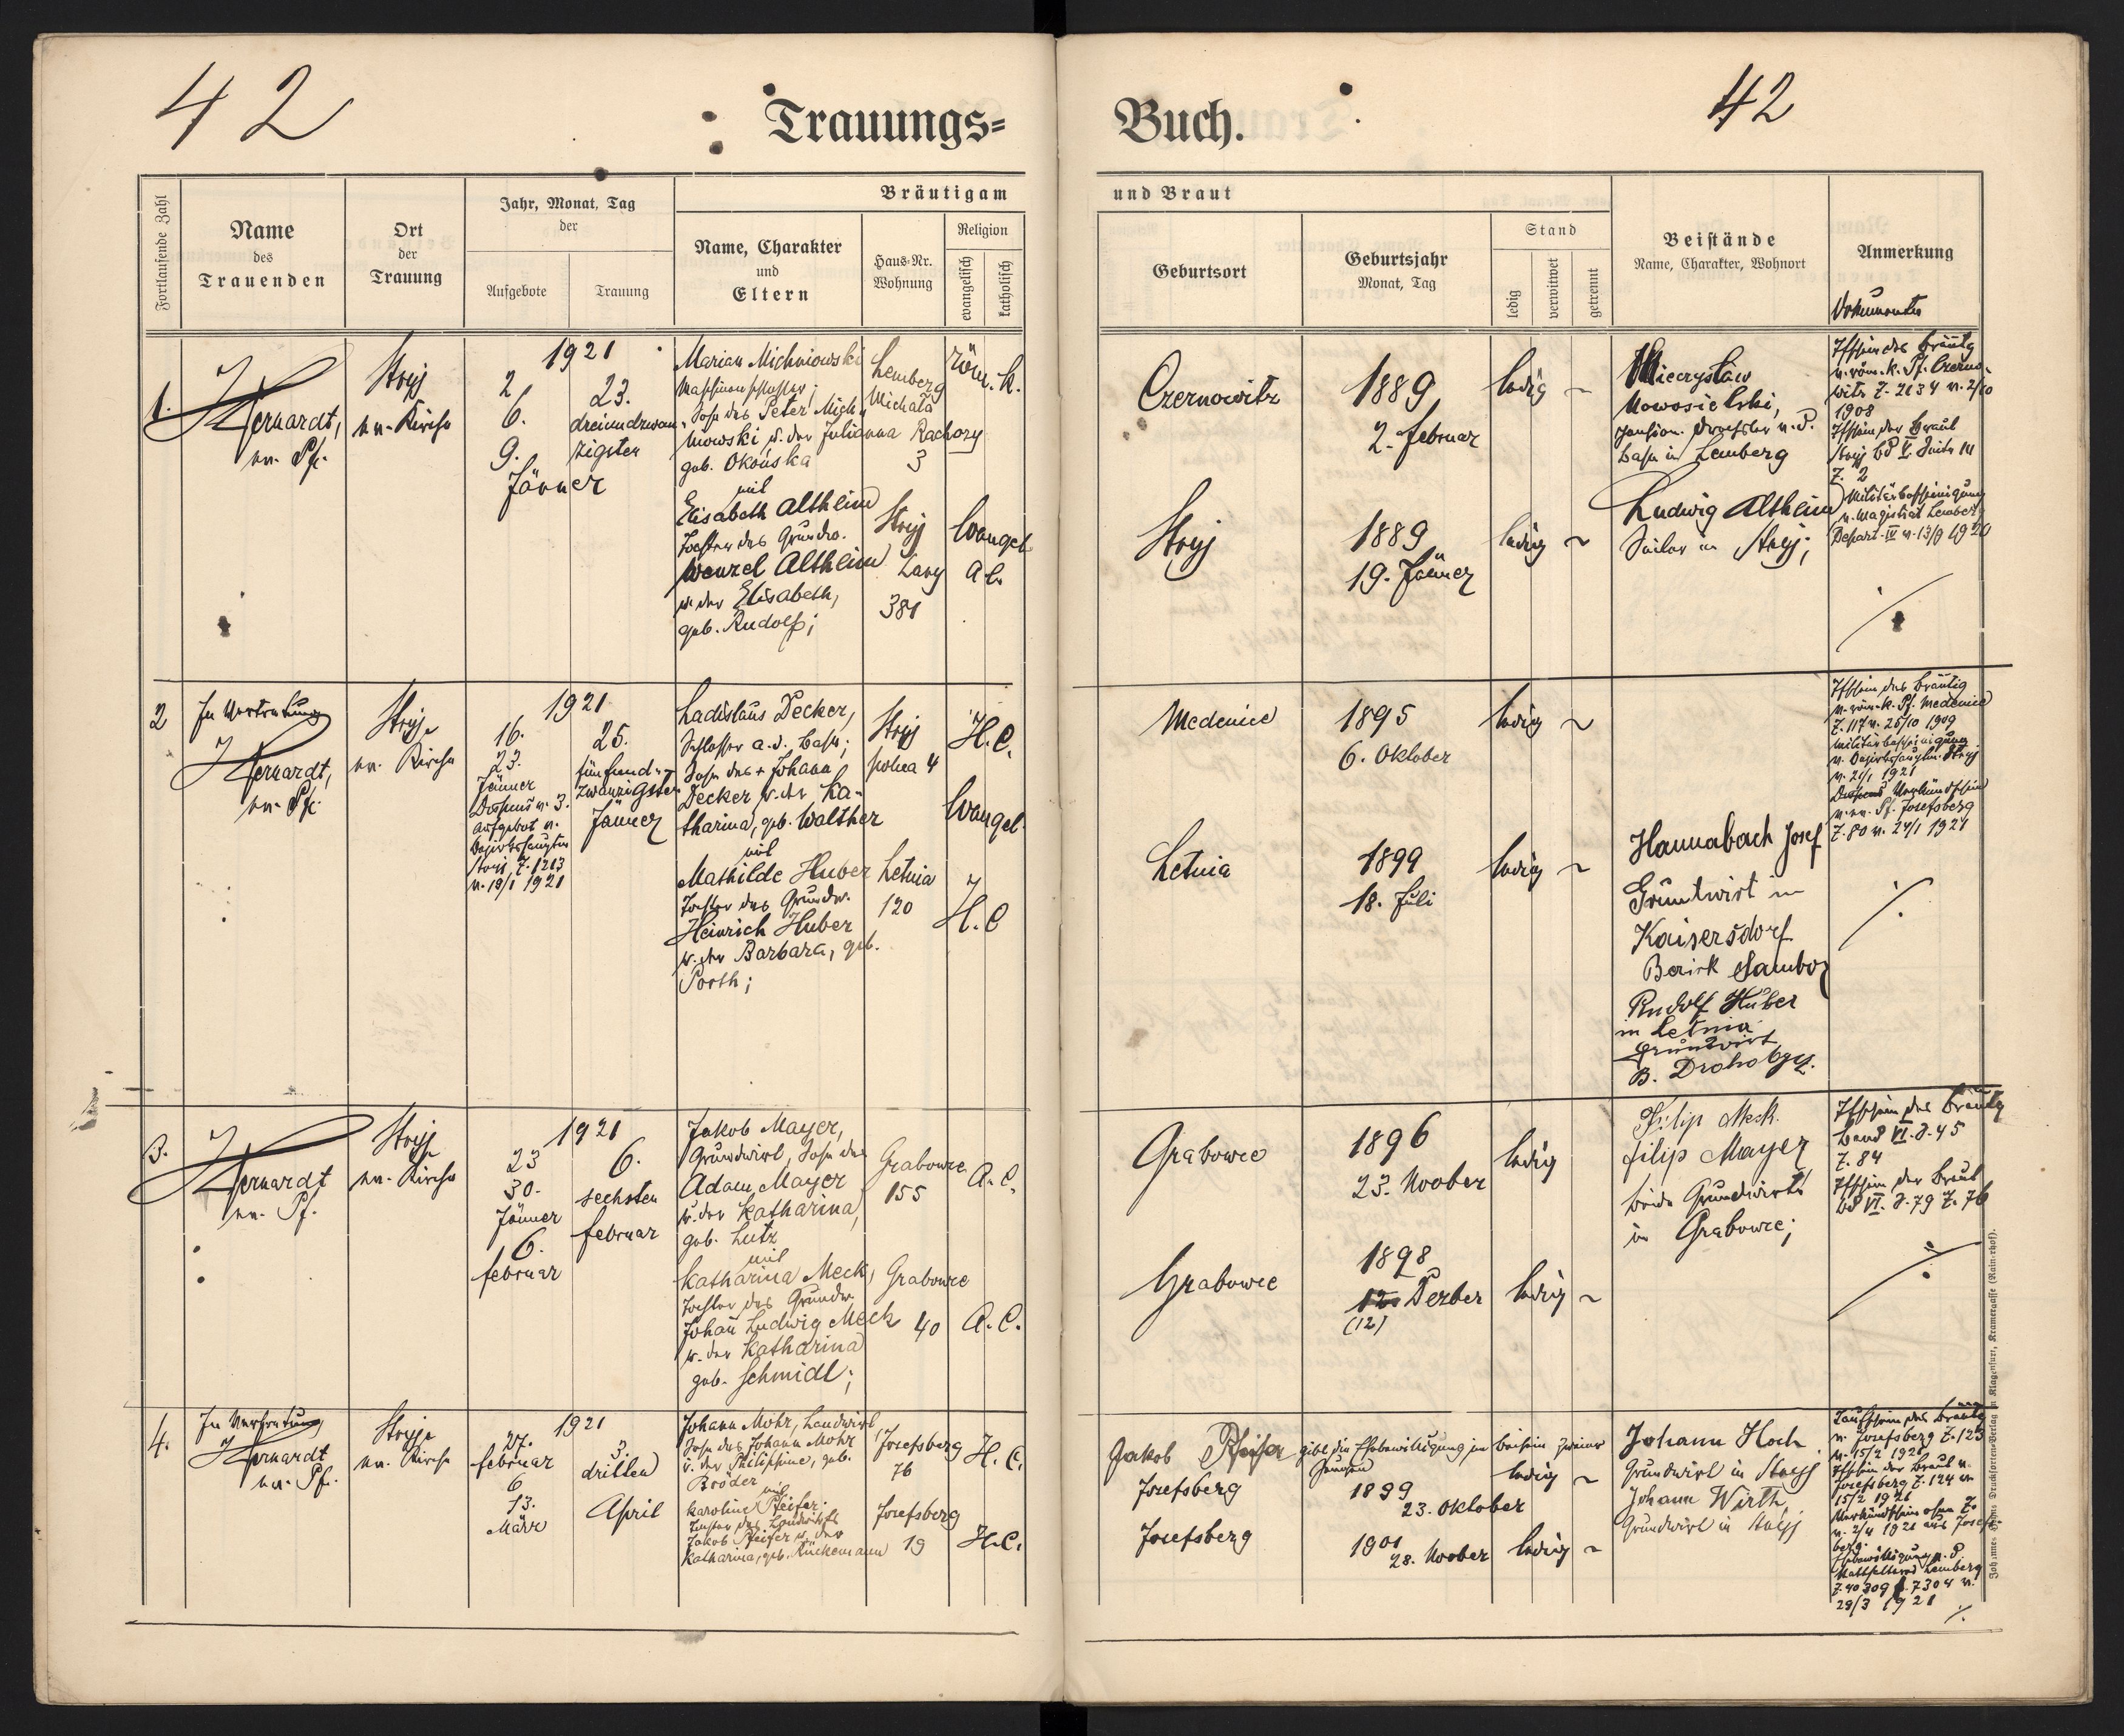 42
Trauungs=
Fortlaufende Zahl
Name
des
Trauenden
Ort
der
Trauung
Jahr, Monat, Tag
der
Aufgebote
Trauung
Bräutigam
Name, Charakter
und
Eltern
Haus-Nr.
Wohnung
Religion
evangelisch
katholisch
1.
ev. Pf.
Stryj
ev. Kirche
1921
2.
6.
9.
Jänner
23.
dreiundzwan-
zigster
Marian Michniowski
Maschinenschlosser;
Sohn des Peter Mich-
niowski u. der Julianna
geb. Okońska
mit
Elisabeth Altheim
Tochter des Grundw.
Wenzel Altheim
u. der Elisabeth,
geb. Rudolf;
Lemberg
Michała
Rachozy
3
Stryj
Łany
381
röm. k.
Evangel.
A. C.
2
In Vertretung
ev. Pf.
Stryj
ev. Kirche
1921
16.
23.
Jänner
Dispens v. 3.
Aufgebot v.
Bezirkshauptm
Stryj Z. 1213
v. 19/1 1921
25.
fünfund-
zwanzigster
Jänner
Ladislaus Decker,
Schlosser a. d. Bahn;
Sohn des + Johann
Decker u. der Ka-
tharina, geb. Walther
mit
Mathilde Huber
Tochter des Grundw.
Heinrich Huber
u. der Barbara, geb.
Porth;
Stryj
polna 4
Letnia
120
H. C.
Evangel.
H. C
3.
ev. Pf.
Stryj
ev. Kirche
1921
23
30.
Jänner
6.
Februar
6.
sechsten
Februar
Jakob Mayer,
Grundwirt, Sohn des
Adam Mayer
u. der Katharina,
geb. Lutz
mit
Katharina Meck,
Tochter des Grundw.
Johañ Ludwig Meck
u. der Katharina
geb. Schmidt;
Grabowce
155
Grabowce
40
A. C.
A. C.
4.
In Vertretung
ev. Pf.
Stryj
ev. Kirche
1921
27.
Februar
6
13.
März
3.
dritten
April
Johann Mohr, Landwirt
Sohn des Johann Mohr
u. der Philippine, geb.
Bröder
mit
Karoline Pfeifer
Tochter des Landwirts
Jakob Pfeifer u. der
Katharina, geb. Rückemann
Josefsberg
76
Josefsberg
19
H. C.
H. C.
Buch.
42
und Braut
Geburtsort
Geburtsjahr
Monat, Tag
Stand
ledig
verwitwet
getrennt
Beistände
Name, Charakter, Wohnort
Anmerkung
Dokumente
Czernowitz
1889
2. Februar
ledig
Mieczysław
Nowosielski,
pension. d. P.
Bahn in Lemberg
Tfschein des Bräutig
v. röm. k. Pf. Czerno-
witz Z. 2134 v. 2/10
1908
Tfschein der Braut
Stryj Bd V. Seite 111
Z. 2
Militärbescheinigung
v. Magistrat Lemberg
Depart. IV v. 13/9 1920
Stryj
1889
19. Jänner
ledig
Ludwig Altheim
Seiler in Stryj;
Medenice
1895
6. Oktober
ledig
Tfschein des Bräutig
v. röm. k. Pf. Medenice
Z. 117 v. 25/10 1909
Militärbescheinigung
v. Bezirkshauptm. Stryj
v. 21/1 1921
Verkündschein
v. ev. Pf. Josefsberg
Z. 80 v. 24/1 1921
Letnia
1899
18. Juli
ledig
Hannabach Josef
Gruntwirt in
Kaisersdorf
Bezirk Sambor
Rudolf Huber
in Letnia
Grundwirt
B. Drohobycz.
Grabowce
1896
23. Novber
ledig
Filip Meck
Filip Mayer
beide Grundwirte
in Grabowce;
Tfschein des Bräutg
Band VI. S. 45
Z. 84
Tfschein der Braut
Bd VI. S. 79 Z. 76
Grabowce
1898
12. Dezber
(12)
ledig
Jakob Pfeifer gibt die Ehebewilligung im beisein zweier
Zeugen
Josefsberg
1899
23. Oktober
ledig
Josefsberg
1901
28. Novber
ledig
Johann Hoch
Grundwirt in Stryj
Johann Wirth,
Grundwirt in Stryj
Taufschein des Bräutg
v. Josefsberg Z. 123
v. 15/2 1921
Tfschein der Braut v.
Josefsberg Z. 124 v.
15/2 1921
Verkündschein ohne Z.
v. 2/4 1921 aus Josefs-
berg.
Ehebewilligung v. d.
Statthalterei Lemberg
Z. 40309 7304 v.
29/3 1921